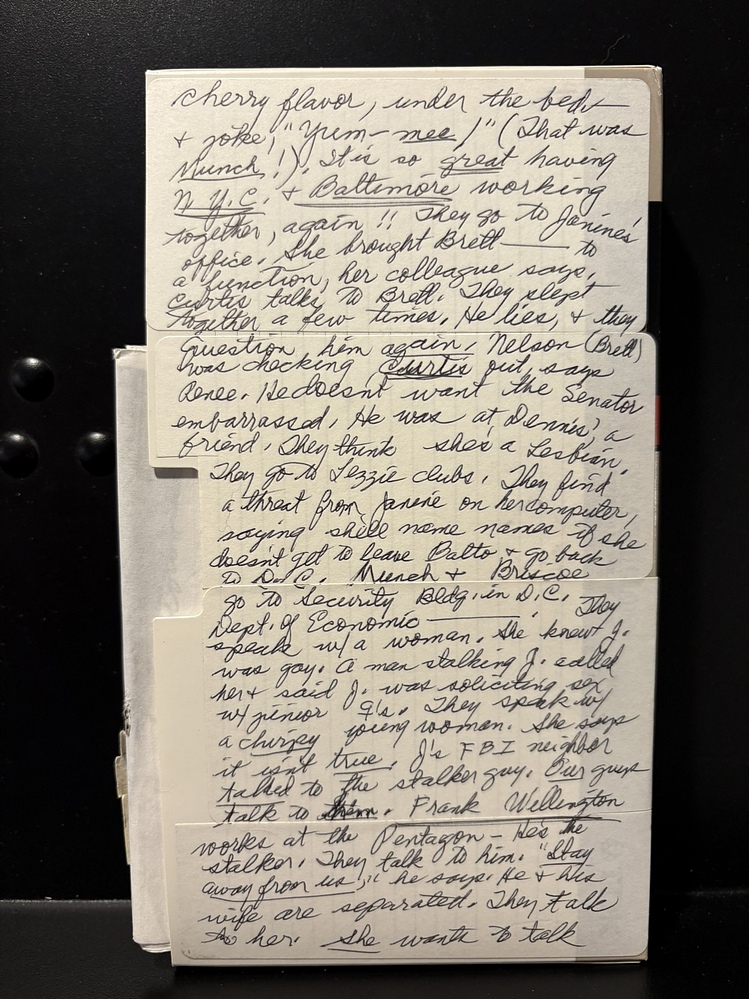 cherry flavor, under the bed,
+ joke, "Yum-mee!" (That was
Munch!). It is so great having
N.Y.C. + Baltimore working
together, again!! They go to Janine's
office. She brought Brett —— to
a function, her colleague says.
Curtis talks to Brett. They slept
together a few times. He lies, + they
question him again. Nelson (Brett)
was checking Curtis out, says
Renee. He doesnt want the Senator
embarrassed. He was at Dennis', a
friend. They think she's a Lesbian.
They go to Lezzie clubs. They find
a threat from Janine on her computer,
saying shell name names if she
doesn't get to leave Balto + go back
to D.C. Munch + Briscoe
go to Security Bldg. in D.C. They
Dept. of Economic ——.
speak w/ a woman. She knew J.
was gay. A man stalking J. called
her + said J. was soliciting sex
w/ junior g's. They speak w/
a chirpy young woman. She says
it isn't true. J's FBI neighbor
talked to the stalker guy. Our guys
talk to him. Frank Wellington
works at the Pentagon – He's the
stalker. They talk to him. "Stay
away from us," he says. He + his
wife are separated. They talk
to her. She wants to talk